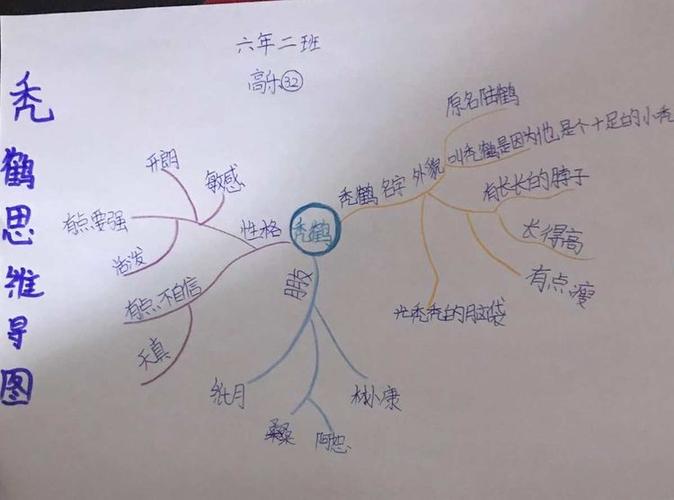 六年二班
高小㉜
秃鹤思维导图
秃鹤
秃鹤 名字 外貌
原名陆鹤
叫秃鹤是因为他是个十足的小秃
有长长的脖子
长得高
有点瘦
光秃秃的脑袋
性格
敏感
开朗
有点要强
活泼
有点不自信
天真
纸月
桑桑
阿恕
林小康